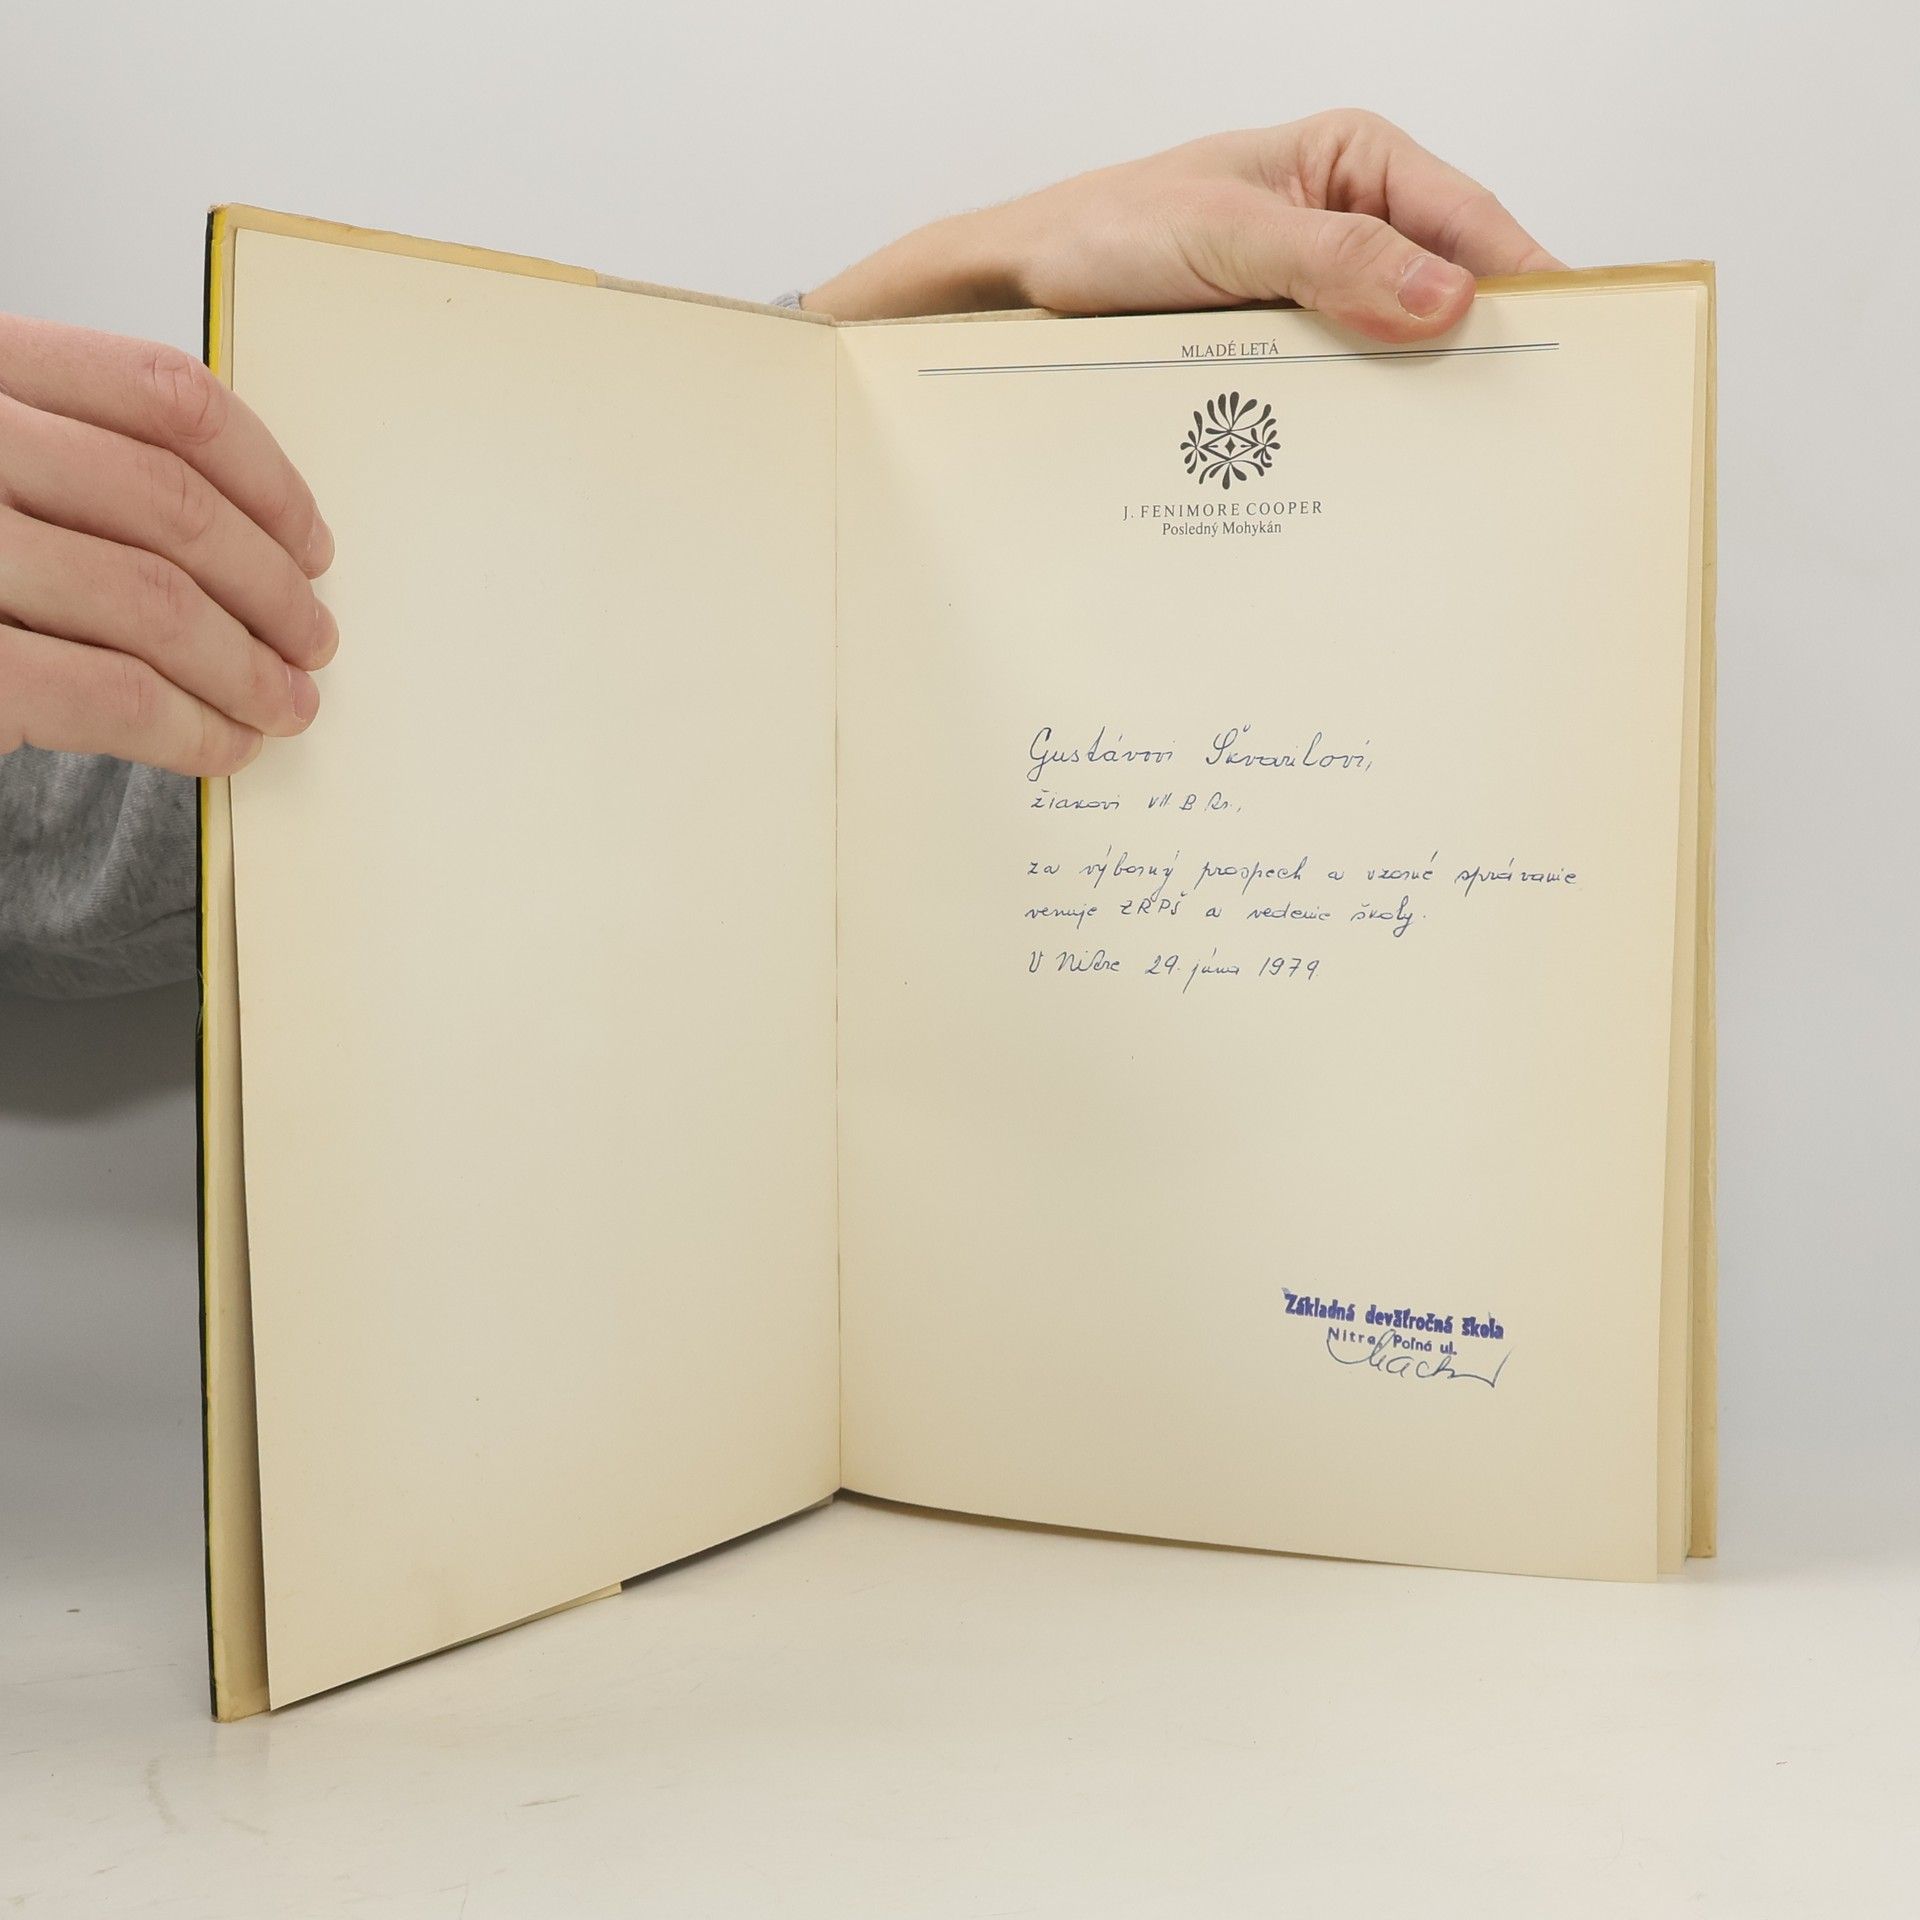 MLADÉ LETÁ
J. FENIMORE COOPER
Posledný Mohykán
Gustávovi Škvarilovi,
žiakovi VII. B tr.,
za výborný prospech a vzorné správanie
venuje ZRPŠ a vedenie školy.
V Nitre 29. júna 1979.
Základná deväťročná škola
Nitra, Poľná ul.